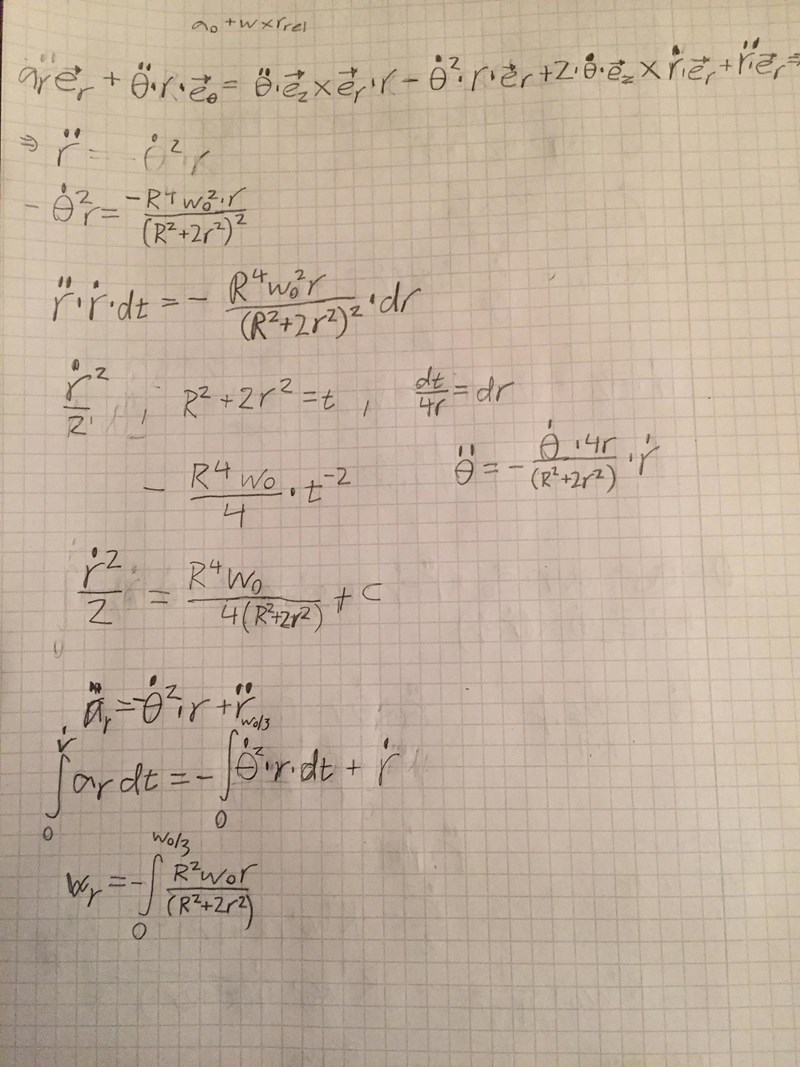 a₀ + w × r_rel
a_r e⃗_r + θ̈·r·e⃗_θ = θ̈·e⃗_z × e⃗_r·r − θ̇²·r·e⃗_r + 2·θ̇·e⃗_z × ṙ·e⃗_r + r̈·e⃗_r ⇒
⇒ r̈ = θ̇² r
− θ̇² r = −R⁴ w₀²·r / (R²+2r²)²
r̈·ṙ·dt = − R⁴w₀²r / (R²+2r²)² · dr
ṙ²/2 , R² + 2r² = t , dt/4r = dr
θ̈ = − θ̇·4r / (R²+2r²) · ṙ
− R⁴ w₀ / 4 · t⁻²
ṙ²/2 = R⁴ w₀ / 4(R²+2r²) + C
a_r = −θ̇²·r + r̈
∫₀^ṙ a_r dt = −∫₀^(w₀/3) θ̇²·r·dt + ṙ
v_r = −∫₀^(w₀/3) R²w₀r / (R²+2r²)